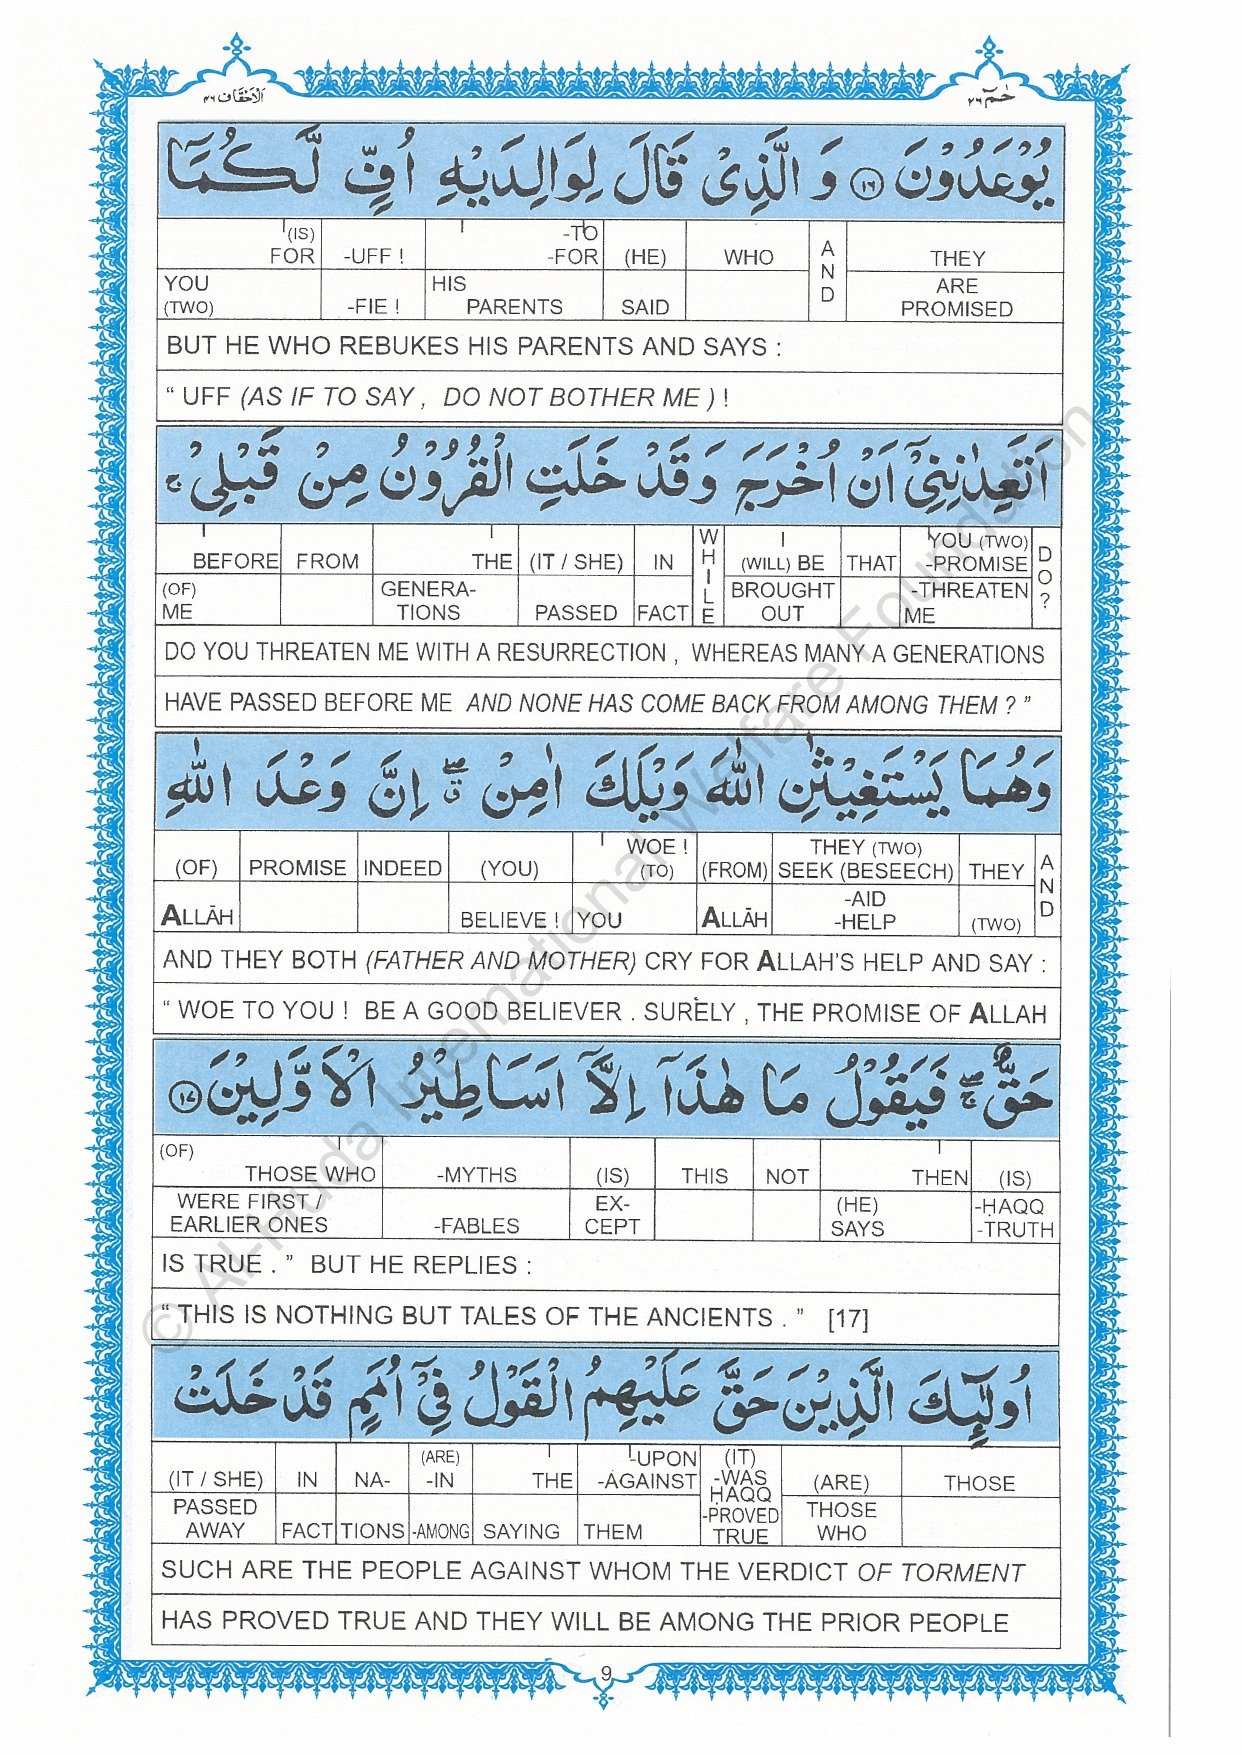 الاحقاف ٤٦
حٰمٓ ٢٦
يُوْعَدُوْنَ ١٦ وَ الَّذِىْ قَالَ لِوَالِدَيْهِ اُفٍّ لَّكُمَآ
(IS) FOR -UFF ! -TO -FOR (HE) WHO AND THEY
YOU (TWO) -FIE ! HIS PARENTS SAID ARE PROMISED
BUT HE WHO REBUKES HIS PARENTS AND SAYS :
“ UFF (AS IF TO SAY , DO NOT BOTHER ME ) !
اَتَعِدٰنِنِىْٓ اَنْ اُخْرَجَ وَقَدْ خَلَتِ الْقُرُوْنُ مِنْ قَبْلِىْ ۚ
BEFORE FROM THE (IT / SHE) IN WHILE I (WILL) BE THAT YOU (TWO) -PROMISE DO?
(OF) ME GENERA- TIONS PASSED FACT BROUGHT OUT -THREATEN ME
DO YOU THREATEN ME WITH A RESURRECTION , WHEREAS MANY A GENERATIONS
HAVE PASSED BEFORE ME AND NONE HAS COME BACK FROM AMONG THEM ? ”
وَهُمَا يَسْتَغِيْثٰنِ اللّٰهَ وَيْلَكَ اٰمِنْ ۖ ق اِنَّ وَعْدَ اللّٰهِ
(OF) PROMISE INDEED (YOU) WOE ! (TO) (FROM) THEY (TWO) SEEK (BESEECH) THEY AND
ALLĀH BELIEVE ! YOU ALLĀH -AID -HELP (TWO)
AND THEY BOTH (FATHER AND MOTHER) CRY FOR ALLAH’S HELP AND SAY :
“ WOE TO YOU ! BE A GOOD BELIEVER . SURELY , THE PROMISE OF ALLAH
حَقٌّ ۖۚ فَيَقُوْلُ مَا هٰذَآ اِلَّآ اَسَاطِيْرُ الْاَوَّلِيْنَ ١٧
(OF) THOSE WHO -MYTHS (IS) THIS NOT THEN (IS)
WERE FIRST / EARLIER ONES -FABLES EX- CEPT (HE) SAYS -ḤAQQ -TRUTH
IS TRUE . ” BUT HE REPLIES :
“ THIS IS NOTHING BUT TALES OF THE ANCIENTS . ” [17]
اُولٰٓئِكَ الَّذِيْنَ حَقَّ عَلَيْهِمُ الْقَوْلُ فِىْٓ اُمَمٍ قَدْ خَلَتْ
(IT / SHE) IN NA- (ARE) -IN THE -UPON -AGAINST (IT) -WAS ḤAQQ (ARE) THOSE
PASSED AWAY FACT TIONS -AMONG SAYING THEM -PROVED TRUE THOSE WHO
SUCH ARE THE PEOPLE AGAINST WHOM THE VERDICT OF TORMENT
HAS PROVED TRUE AND THEY WILL BE AMONG THE PRIOR PEOPLE
9
© Al-Huda International Welfare Foundation